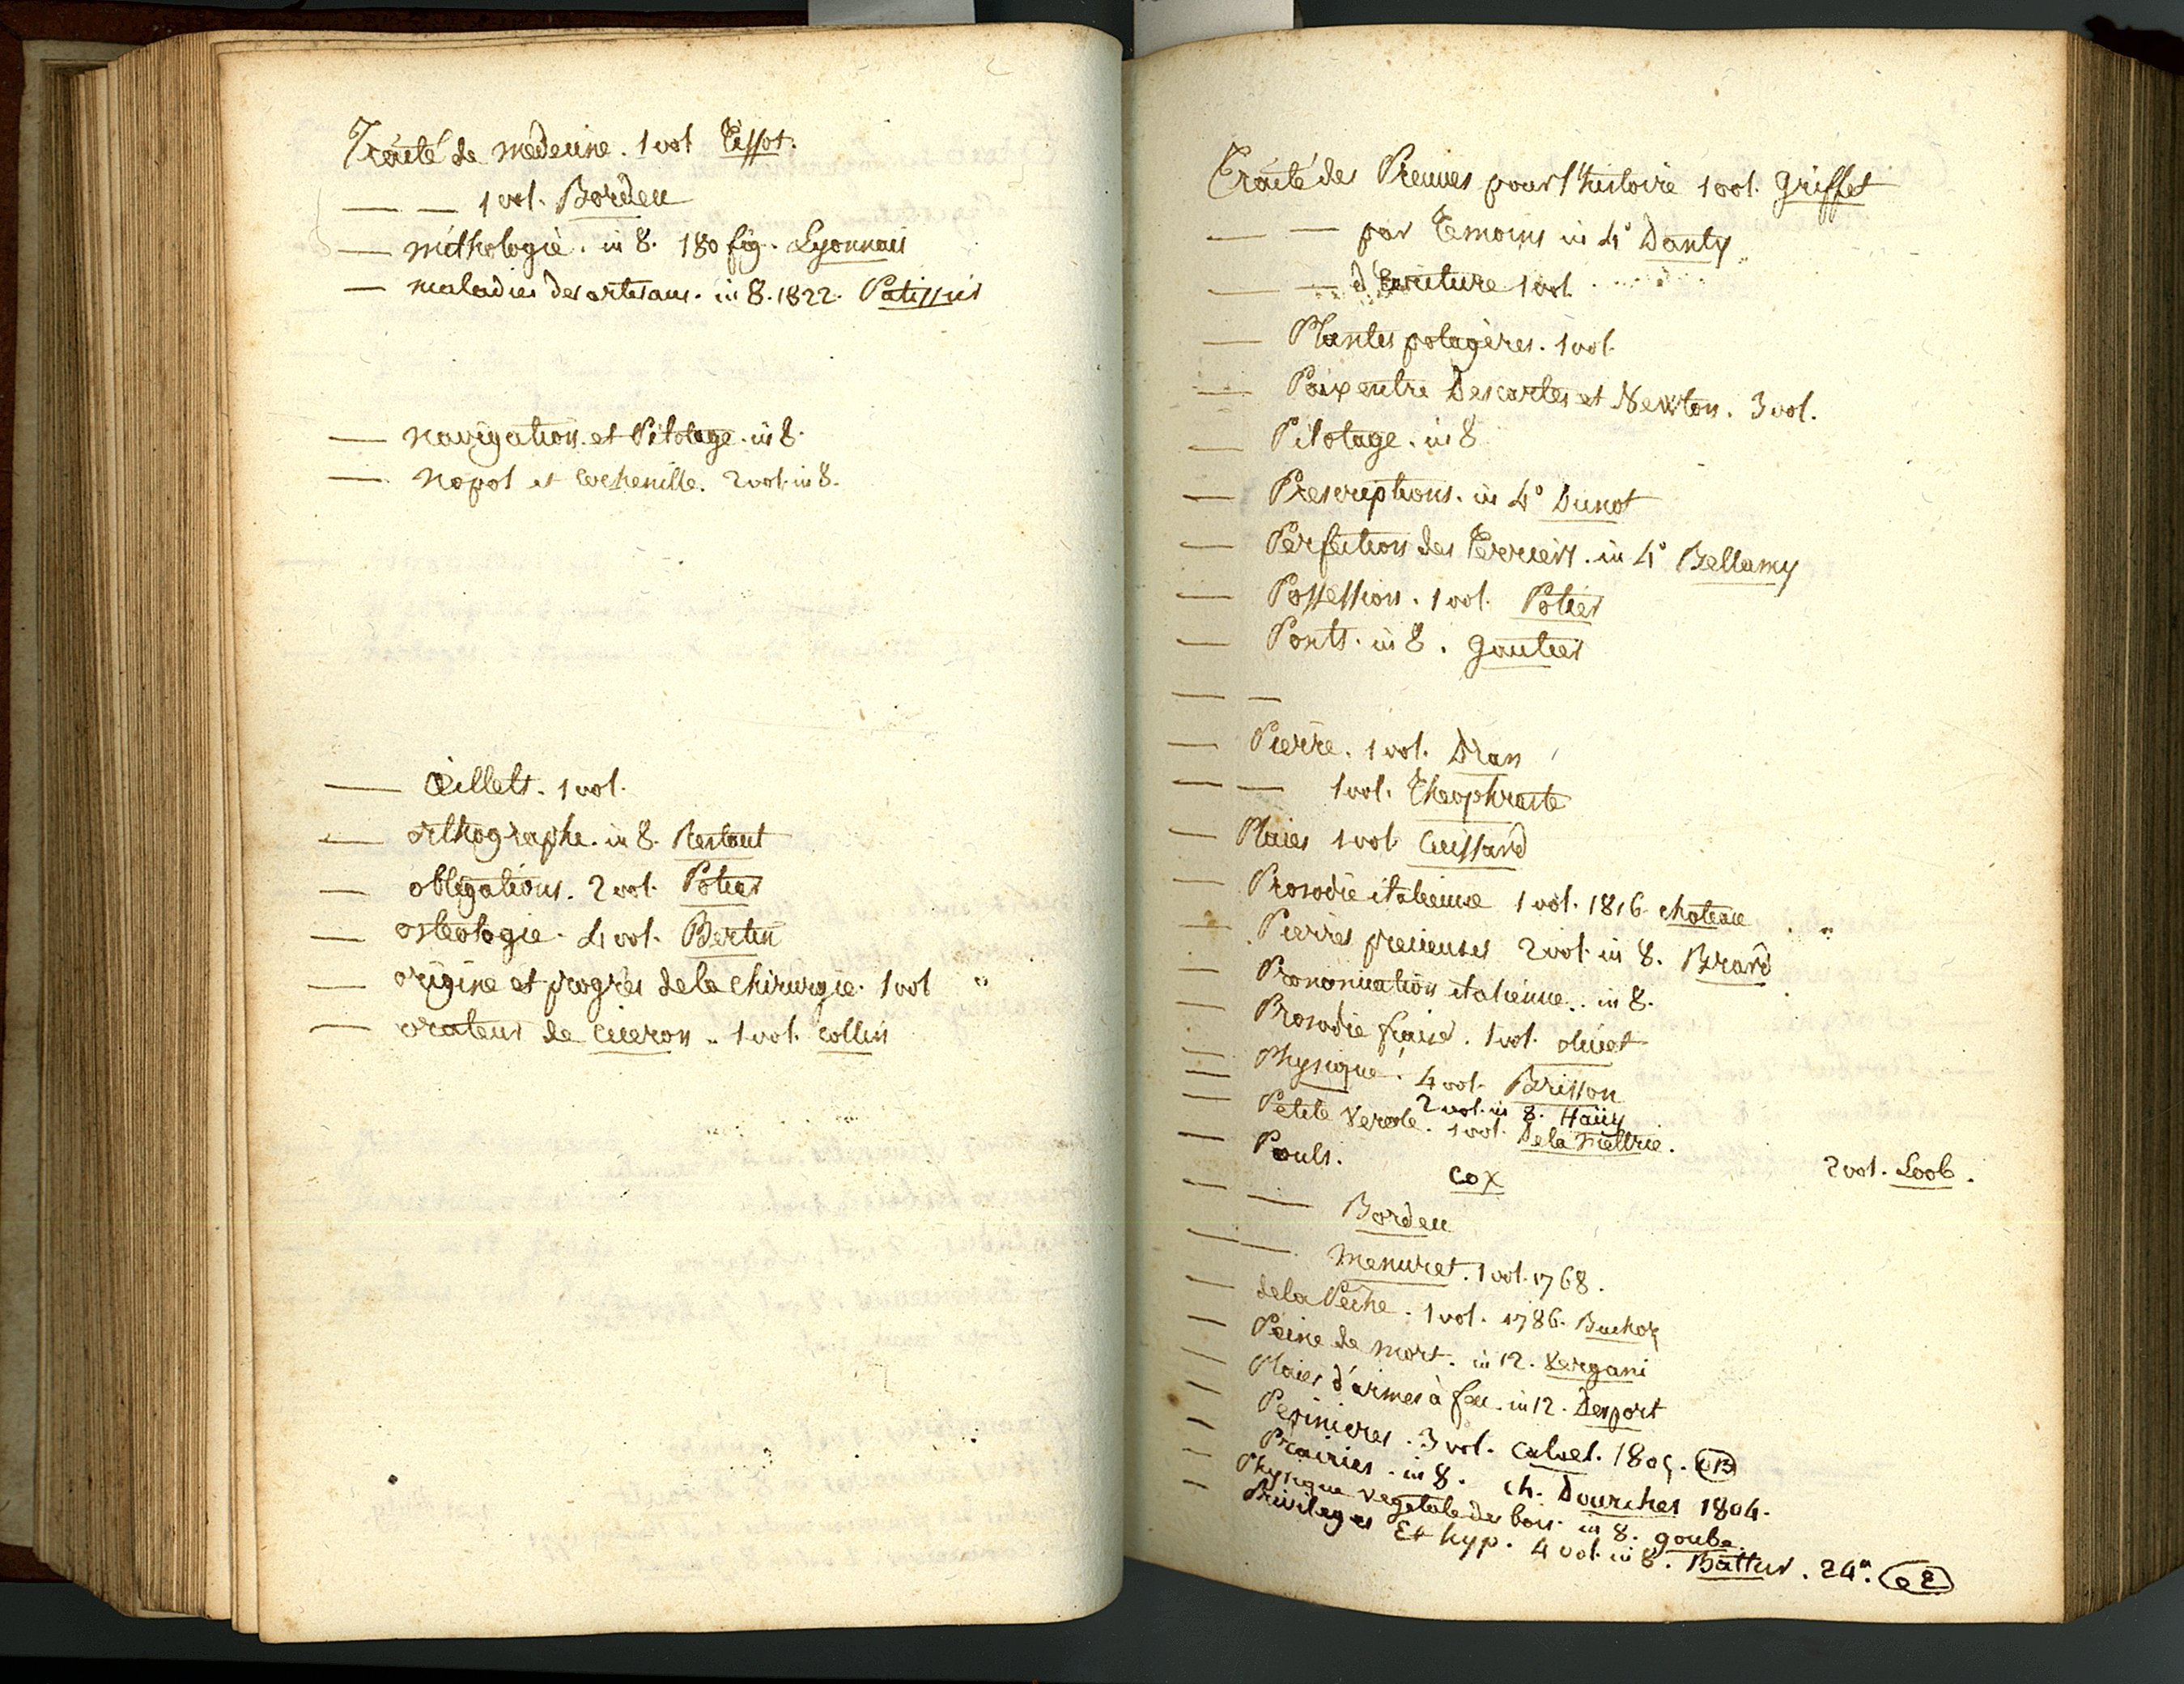 Traité de medecine. 1 vol Tissot.
— — 1 vol. Bordeu
— mithologie. in 8. 180 fig. Lyonnais
— maladies des artisans. in 8. 1822. Patissier
— navigation et Pilotage. in 8.
— Nopal et Cochenille. 2 vol. in 8.
— Œillets. 1 vol.
— orthographe. in 8. Restaut
— obligations. 2 vol. Potier
— osteologie. 4 vol. Bertin
— origine et progrès de la Chirurgie. 1 vol "
— orateur de Ciceron .. 1 vol. Collin
Traité des Preuves pour l'histoire 1 vol. Griffet
— — par Temoins in 4° Danty
— — d'Ecriture 1 vol.
— Plantes potagères. 1 vol.
— Paix entre Descartes et Newton. 3 vol.
— Pilotage. in 8
— Prescriptions. in 4° Dunot
— Perfection des Terriers. in 4° Bellamy
— Possession. 1 vol. Potier
— Ponts. in 8. Gautier
— —
— Pierre. 1 vol. Dran
— — 1 vol. Theophraste
— Plaies 1 vol. Cuissard
— Prosodie italienne 1 vol. 1816. Chateau "
— Pierres precieuses 2 vol. in 8. Brard
— Prononciation italienne. in 8.
— Prosodie fraise. 1 vol. olivet
— Physique. 4 vol. Brisson
— 2 vol. in 8. Haüy
— Petite Verole. 1 vol. De la Mettrie. 2 vol. Loob.
— Pouls. Cox
— — Bordeu
— — Menuret. 1 vol. 1768.
— de la Pêche. 1 vol. 1786. Buchoz
— Peine de mort. in 12. Vergani
— Plaies d'armes à feu. in 12. Desport
— Pepinieres. 3 vol. Calvel. 1805.
— Prairies. in 8. ch. Dourches 1804.
— Physique vegetale des bois. in 8. goube.
— Privileges Et hyp. 4 vol. in 8. Battur. 24".